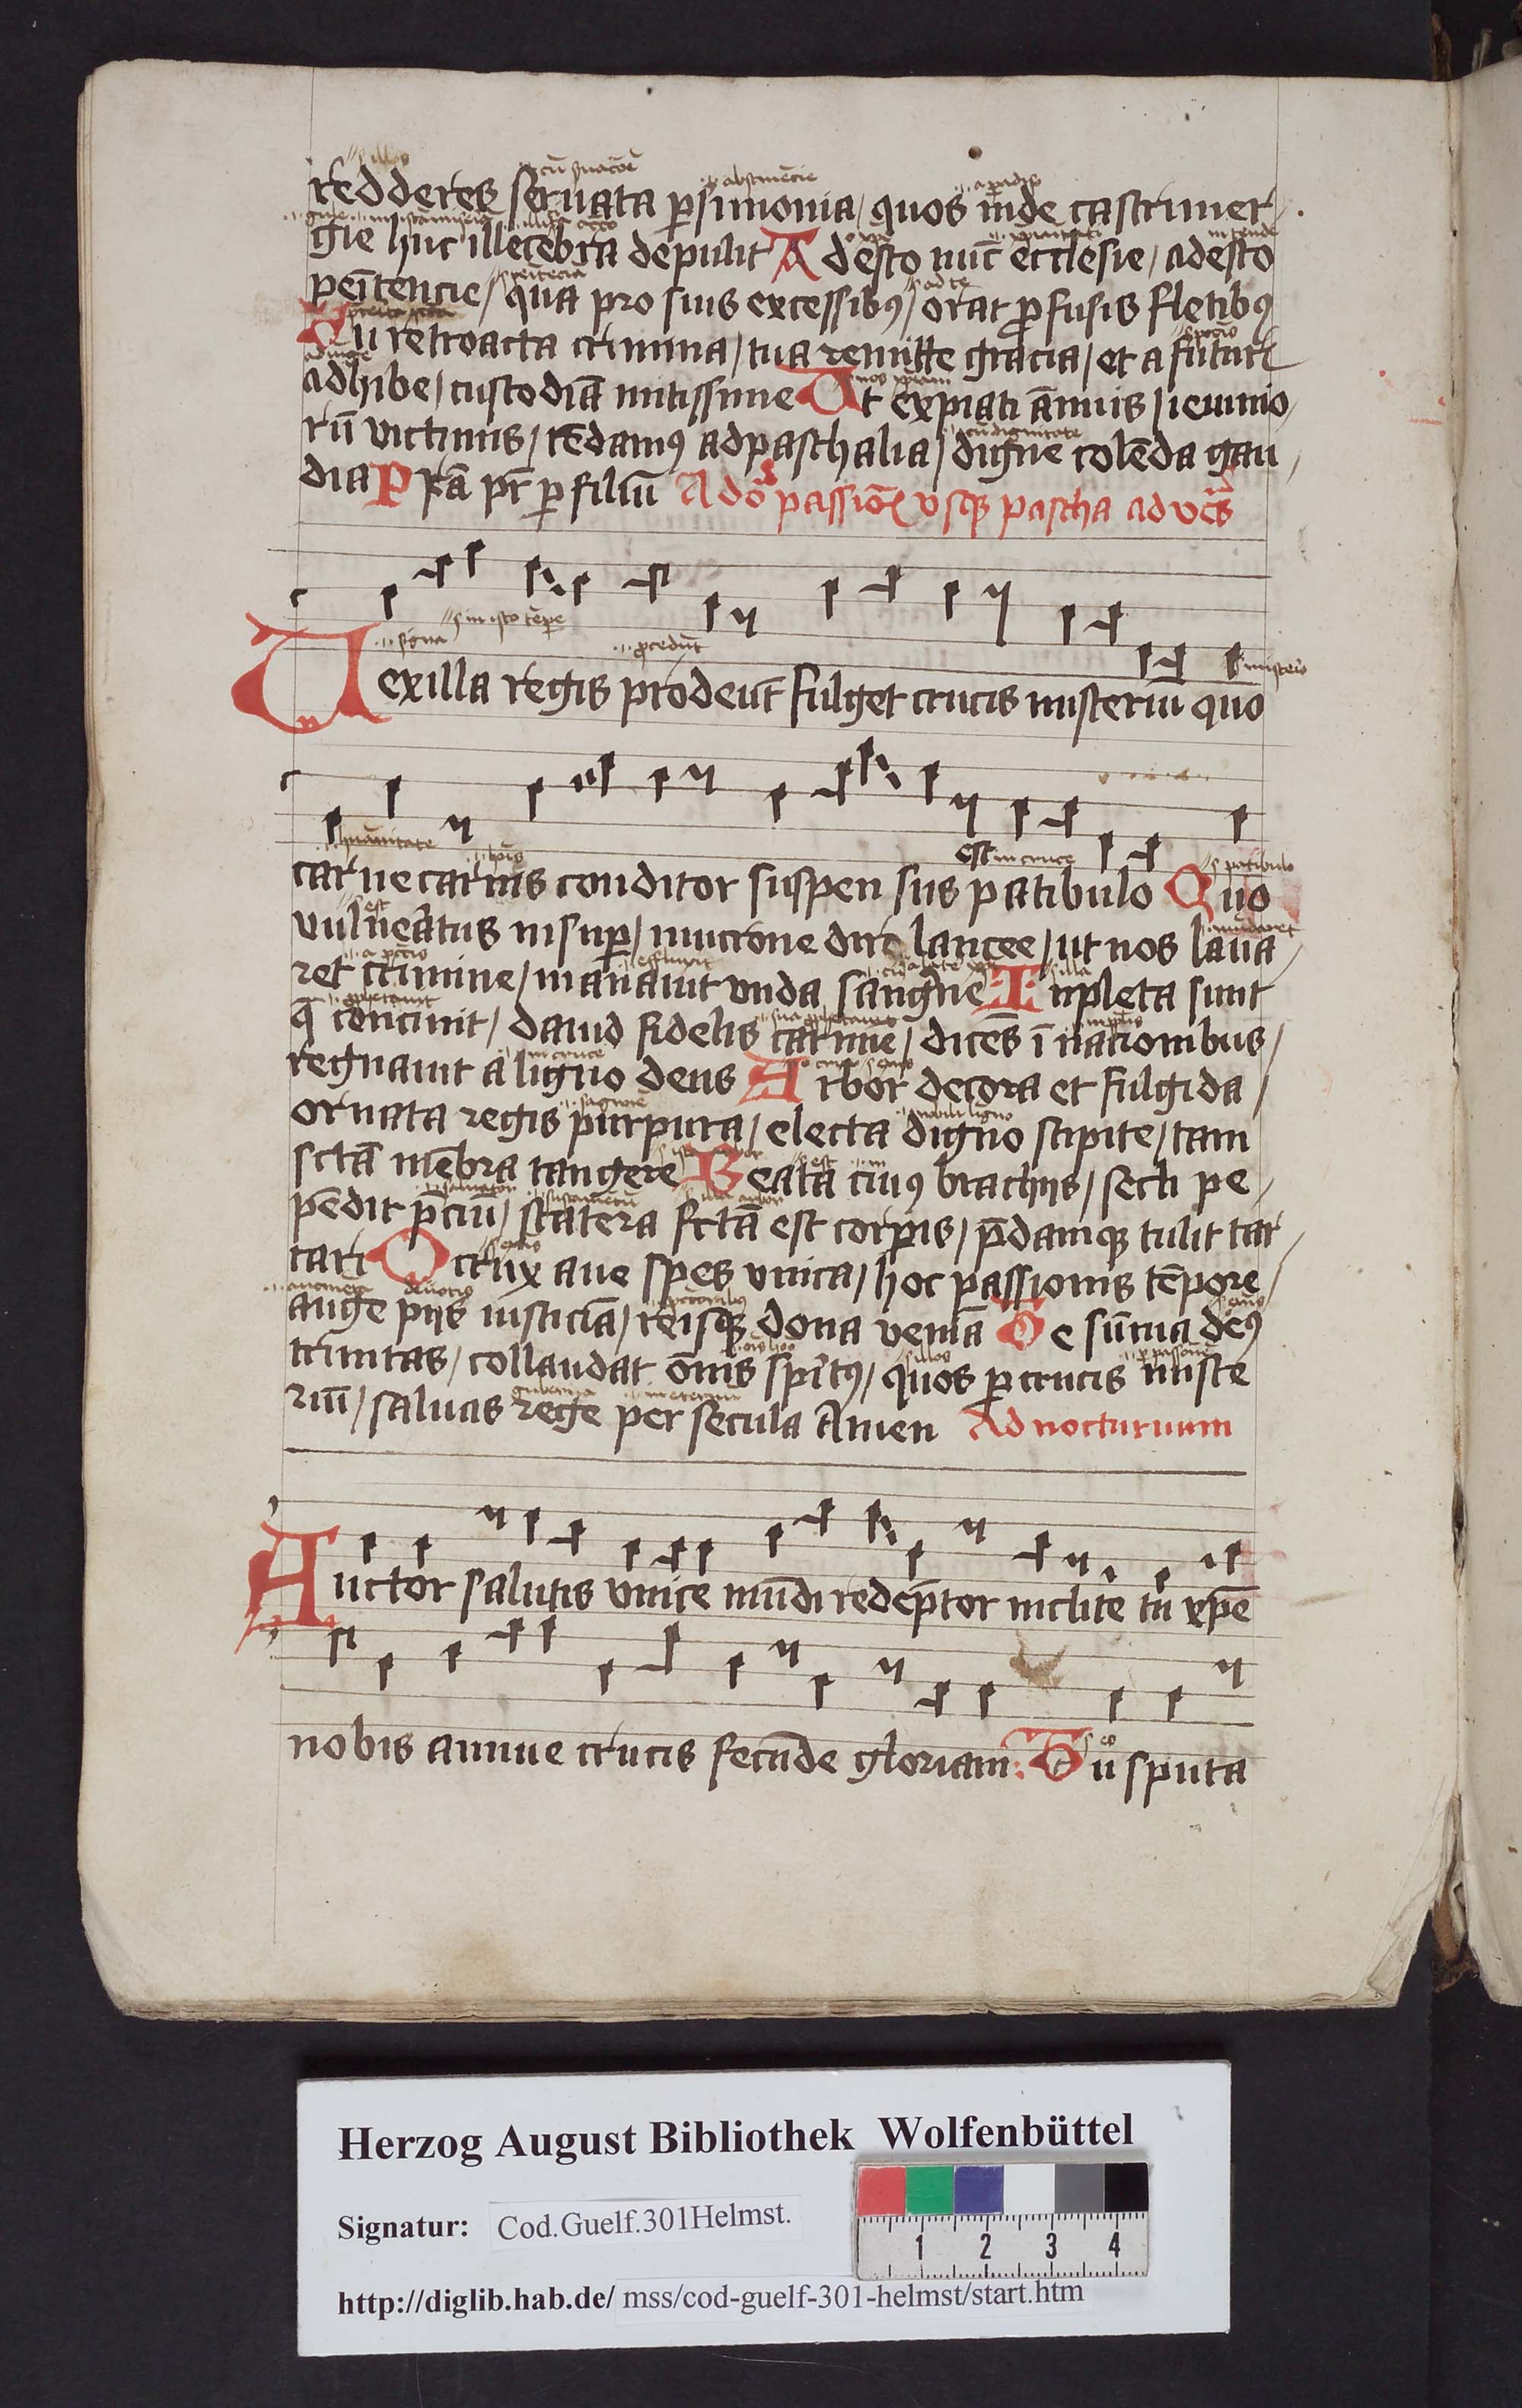 redderes seruata psimonia / quos inde castrimer
gie huc illecebra depulit Adesto nūc ecclesie / adesto
penitencie / qua pro suis excessibꝰ / orat ꝓfusis fletibꝰ
Tu retroacta crimina / tua remitte gracia / et a futuri
adhibe / custodiā mitissime Vt expiati ānuis / ieiunio
rū victimis / tēdamꝰ ad paschalia / digne colēda gau
dia Pręā pr̄ ꝑ filiū Ad oo passiōe vsqꝫ pascha ad vēs
signa s in isto tēpe ꝓcedūt misterio
Vexilla regis prodeūt fulget crucis misteriū quo
humanitate in cruce s patibulo
carne carnis conditor suspen sus est patibulo Quo
vulneratus insuꝑ / mucrone dire lancee / ut nos laua
ret crimine / manauit vnda sanguine Inpleta sunt
q̄ concinit / dauid fidelis carmine / dicēs ī nationibus /
regnauit a ligno deus Arbor decora et fulgida /
ornata regis purpura / electa digno stipite / tam
sctā mēbra tangere Beata cuiꝰ brachijs / secli pe
pēdit p̄ciū / statera fctā est corpis / p̄damqꝫ tulit tar
tari O crux aue spes vnica / hoc passionis tēpore /
auge pijs iusticiā / reisqꝫ dona veniā Te sūma deꝰ
trinitas / collaudat ōnis spūtꝰ / quos ꝑ crucis miste
riū / saluas rege per secula Amen Ad nocturnum
Auctor salutis vnice mūdi redēptor inclite tu xp̄e
nobis annue crucis fecūde gloriam. Tu sputa
Herzog August Bibliothek Wolfenbüttel
Signatur: Cod.Guelf.301Helmst.
1 2 3 4
http://diglib.hab.de/ mss/cod-guelf-301-helmst/start.htm